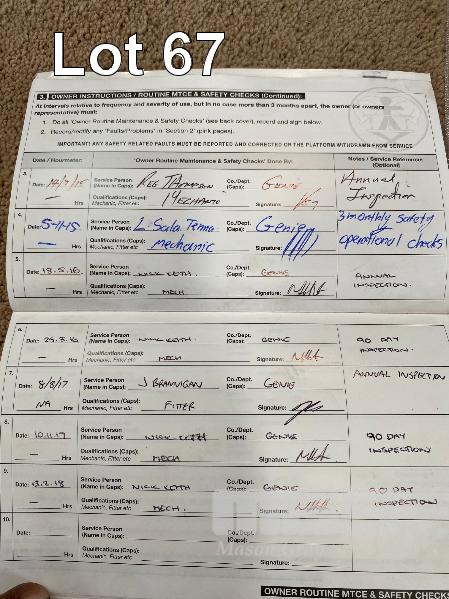 Lot 67
3. OWNER INSTRUCTIONS / ROUTINE MTCE & SAFETY CHECKS (Continued):
At intervals relative to frequency and severity of use, but in no case more than 3 months apart, the owner (or owners
representative) must:
1. Do all 'Owner Routine Maintenance & Safety Checks' (see back cover), record and sign below.
2. Record/rectify any 'Faults/Problems' in 'Section 2' (pink pages).
IMPORTANT! ANY SAFETY RELATED FAULTS MUST BE REPORTED AND CORRECTED OR THE PLATFORM WITHDRAWN FROM SERVICE
Date / Hourmeter: 'Owner Routine Maintenance & Safety Checks' Done By: Notes / Service Reference (Optional)
3. Date: Service Person (Name in Caps): Reg Thompson Co./Dept. (Caps): GENIE Annual Inspection
— Hrs Qualifications (Caps): Mechanic, Fitter etc Mechanic Signature:
4. Date: Service Person (Name in Caps): Co./Dept. (Caps): Genie 3 monthly safety
— Hrs Qualifications (Caps): Mechanic, Fitter etc Mechanic Signature: operational checks
5. Date: 18.5.16. Service Person (Name in Caps): NICK KEITH. Co./Dept. (Caps): GENIE ANNUAL INSPECTION.
— Hrs Qualifications (Caps): Mechanic, Fitter etc MECH Signature:
6. Date: Service Person (Name in Caps): NICK KEITH Co./Dept. (Caps): GENIE 90 DAY INSPECTION.
— Hrs Qualifications (Caps): Mechanic, Fitter etc MECH Signature:
7. Date: 8/8/17 Service Person (Name in Caps): J BRANNIGAN Co./Dept. (Caps): GENIE ANNUAL INSPECTION
NA Hrs Qualifications (Caps): Mechanic, Fitter etc FITTER Signature:
8. Date: 10.11.17 Service Person (Name in Caps): NICK KEITH Co./Dept. (Caps): GENIE 90 DAY INSPECTION
— Hrs Qualifications (Caps): Mechanic, Fitter etc MECH Signature:
9. Date: 13.2.18 Service Person (Name in Caps): NICK KEITH Co./Dept. (Caps): GENIE 90 DAY INSPECTION
— Hrs Qualifications (Caps): Mechanic, Fitter etc MECH. Signature:
10. Date: Service Person (Name in Caps): Co./Dept. (Caps):
Hrs Qualifications (Caps): Mechanic, Fitter etc Signature:
OWNER ROUTINE MTCE & SAFETY CHECKS